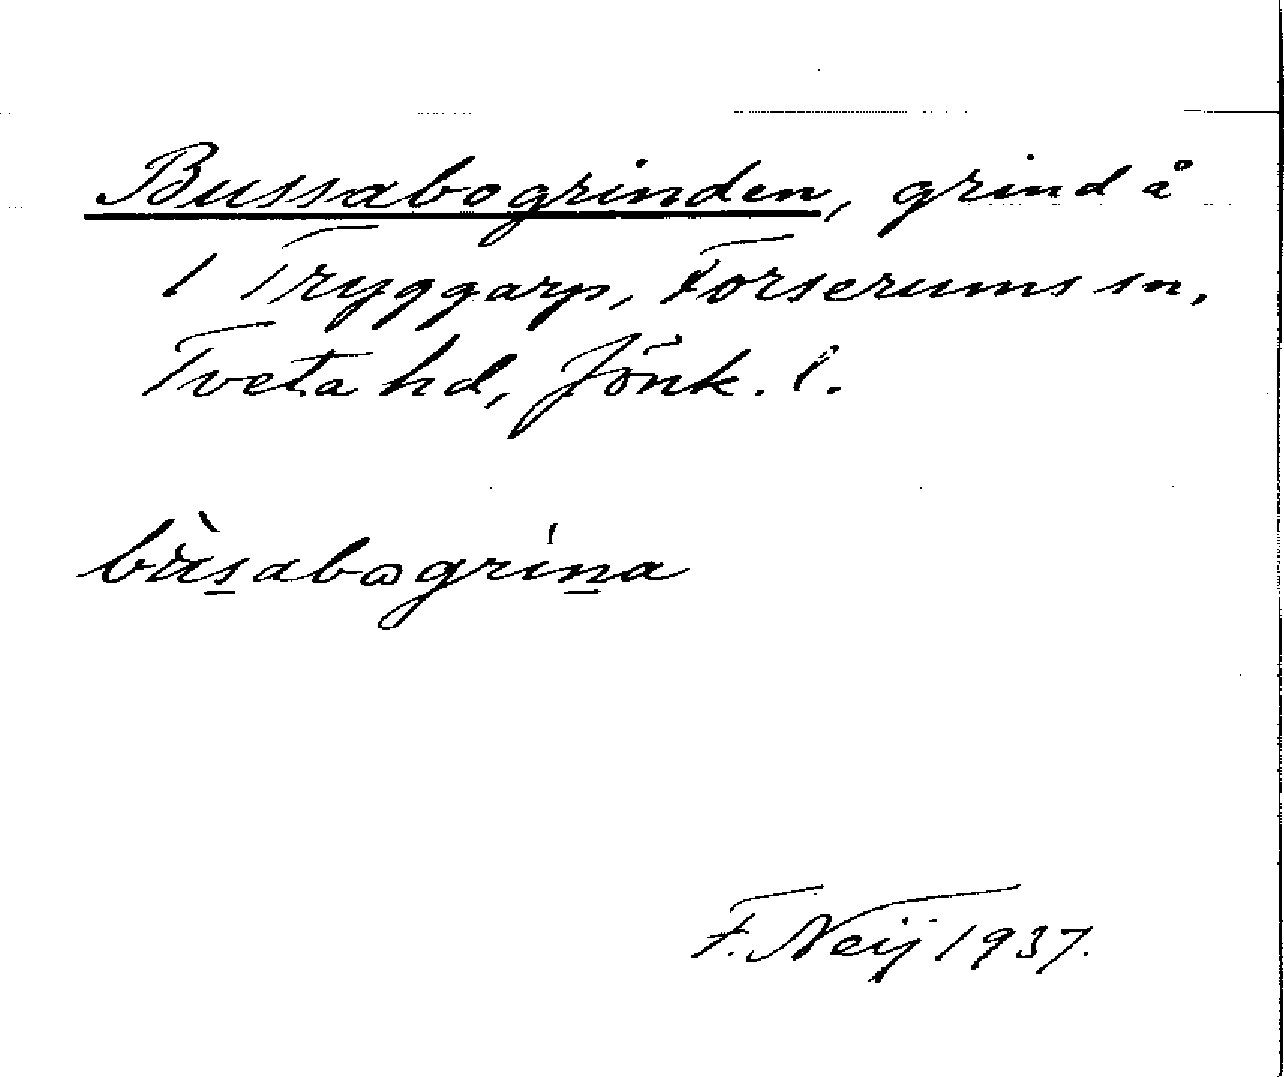 Bussabogrinden, grind å
1 Tryggarp, Forserums sn,
Tveta hd, Jönk. l.
bùsabogrína
F. Neij 1937.